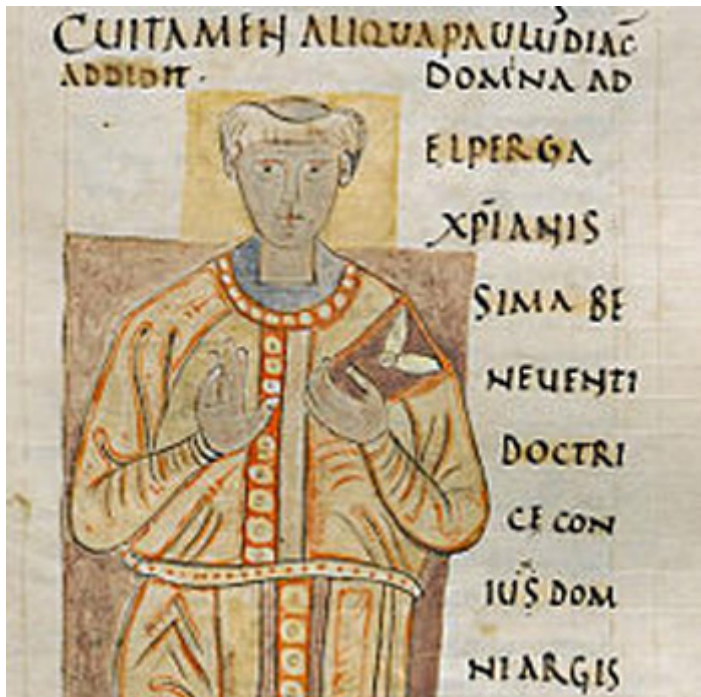 CUITAMEN ALIQUA PAULUS DIAC̄
ADDIDIT · DOMINA AD
ELPERGA
XP̄IANIS
SIMA BE
NEUENTI
DOCTRI
CE CON
IUS̄ DOM
NI ARGIS